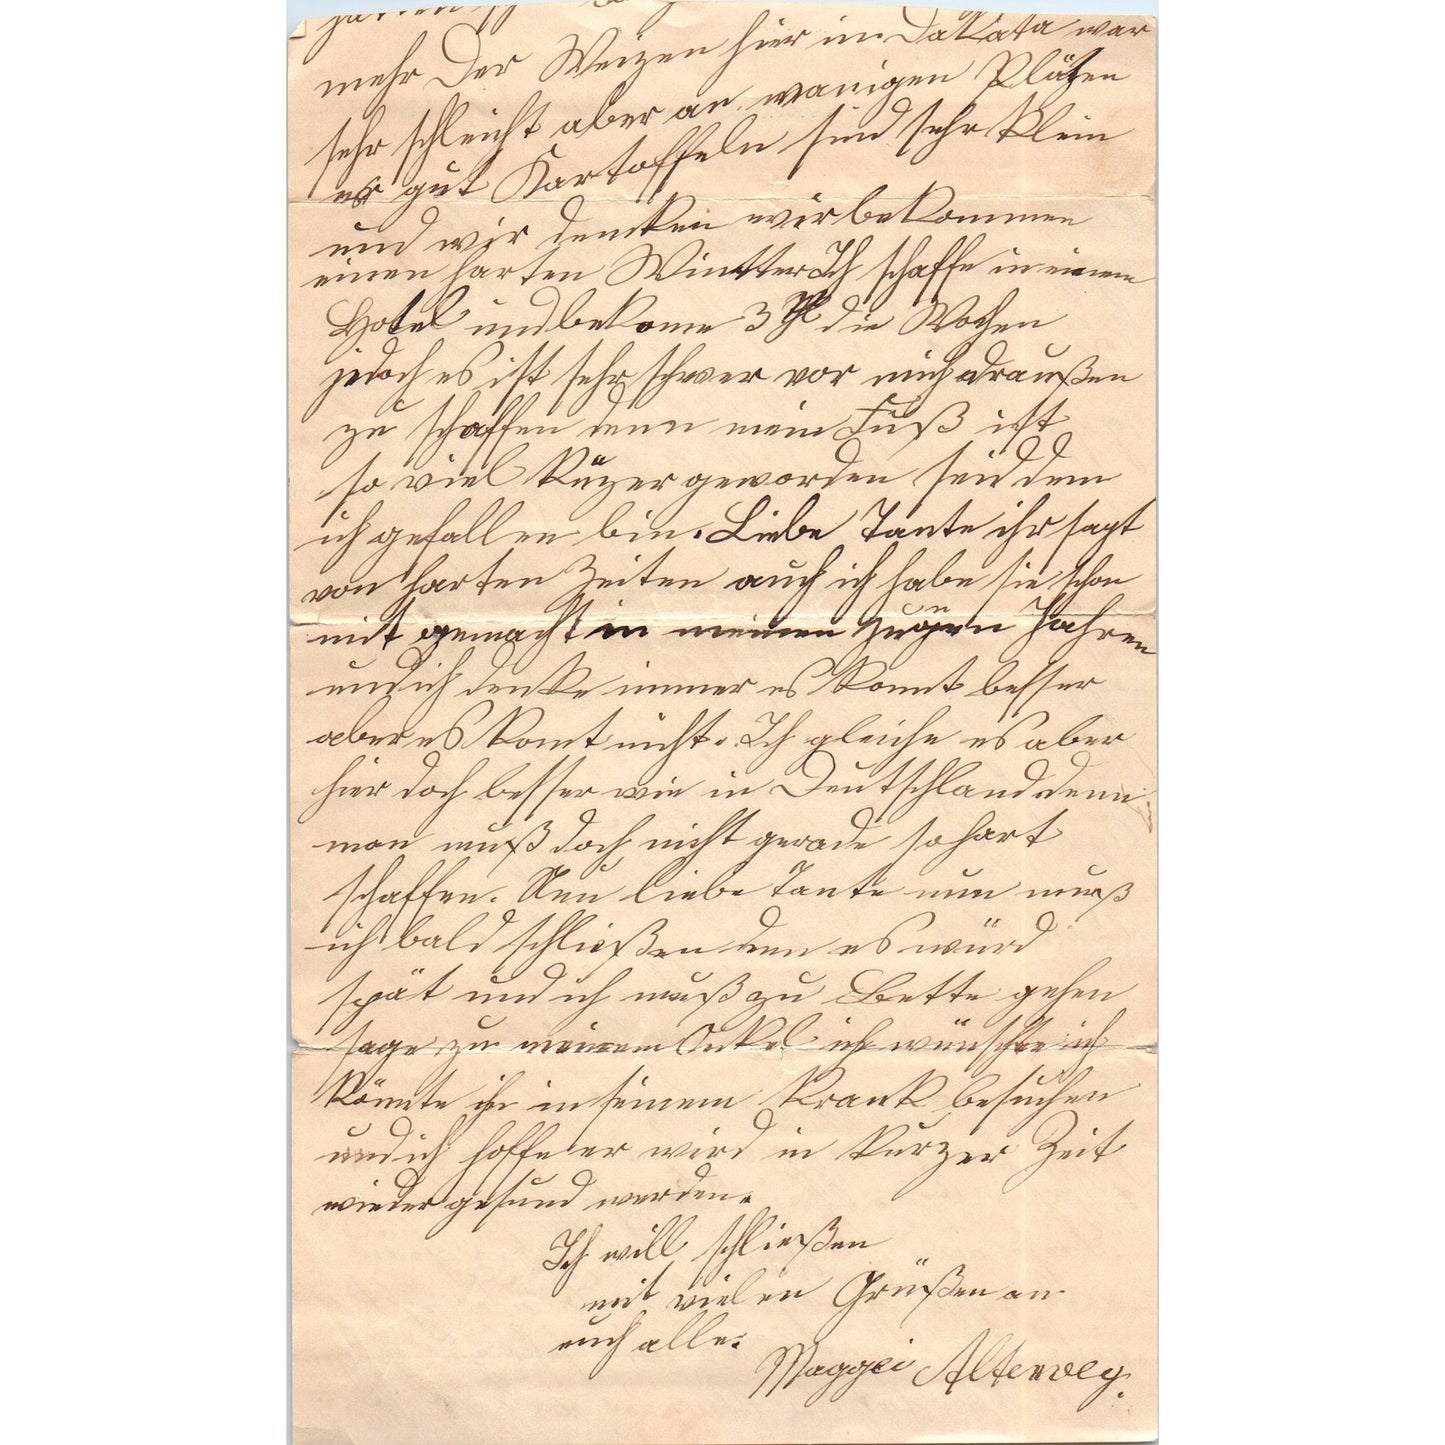 mehr Der Weizen hier in Dakata war
sehr schleicht aber an wanigen Pläzen
er gut Kartoffeln sind sehr klein
und wir dencken wir bekommen
einen harten Wintter Ich schaffe in einem
Hotel und bekome 3 die Wochen
jedoch es ist sehr schwer vor mich draußen
zu schaffen denn mein Fuß ist
so viel küzer geworden seid dem
ich gefallen bin. Liebe Tante ihr sagt
von harten Zeiten auch ich habe sie schon
mit gemacht in meinen Jahren
und ich denke immer es komt besser
aber es komt nicht. Ich gleiche es aber
hier doch besser wie in Deutschland denn
man muß doch nicht gerade so hart
schaffen. Nun liebe Tante nun muß
ich bald schließen den es würd
spät und ich muß zu Bette gehen
sage zu meinem Onkel ich wünschte ich
könnte ihn in seinem Krank besuchen
und ich hoffe er wird in kurzer Zeit
wieder gesund werden.
Ich will schließen
mit vielen Grüßen an
euch alle.
Maggei Altervey.